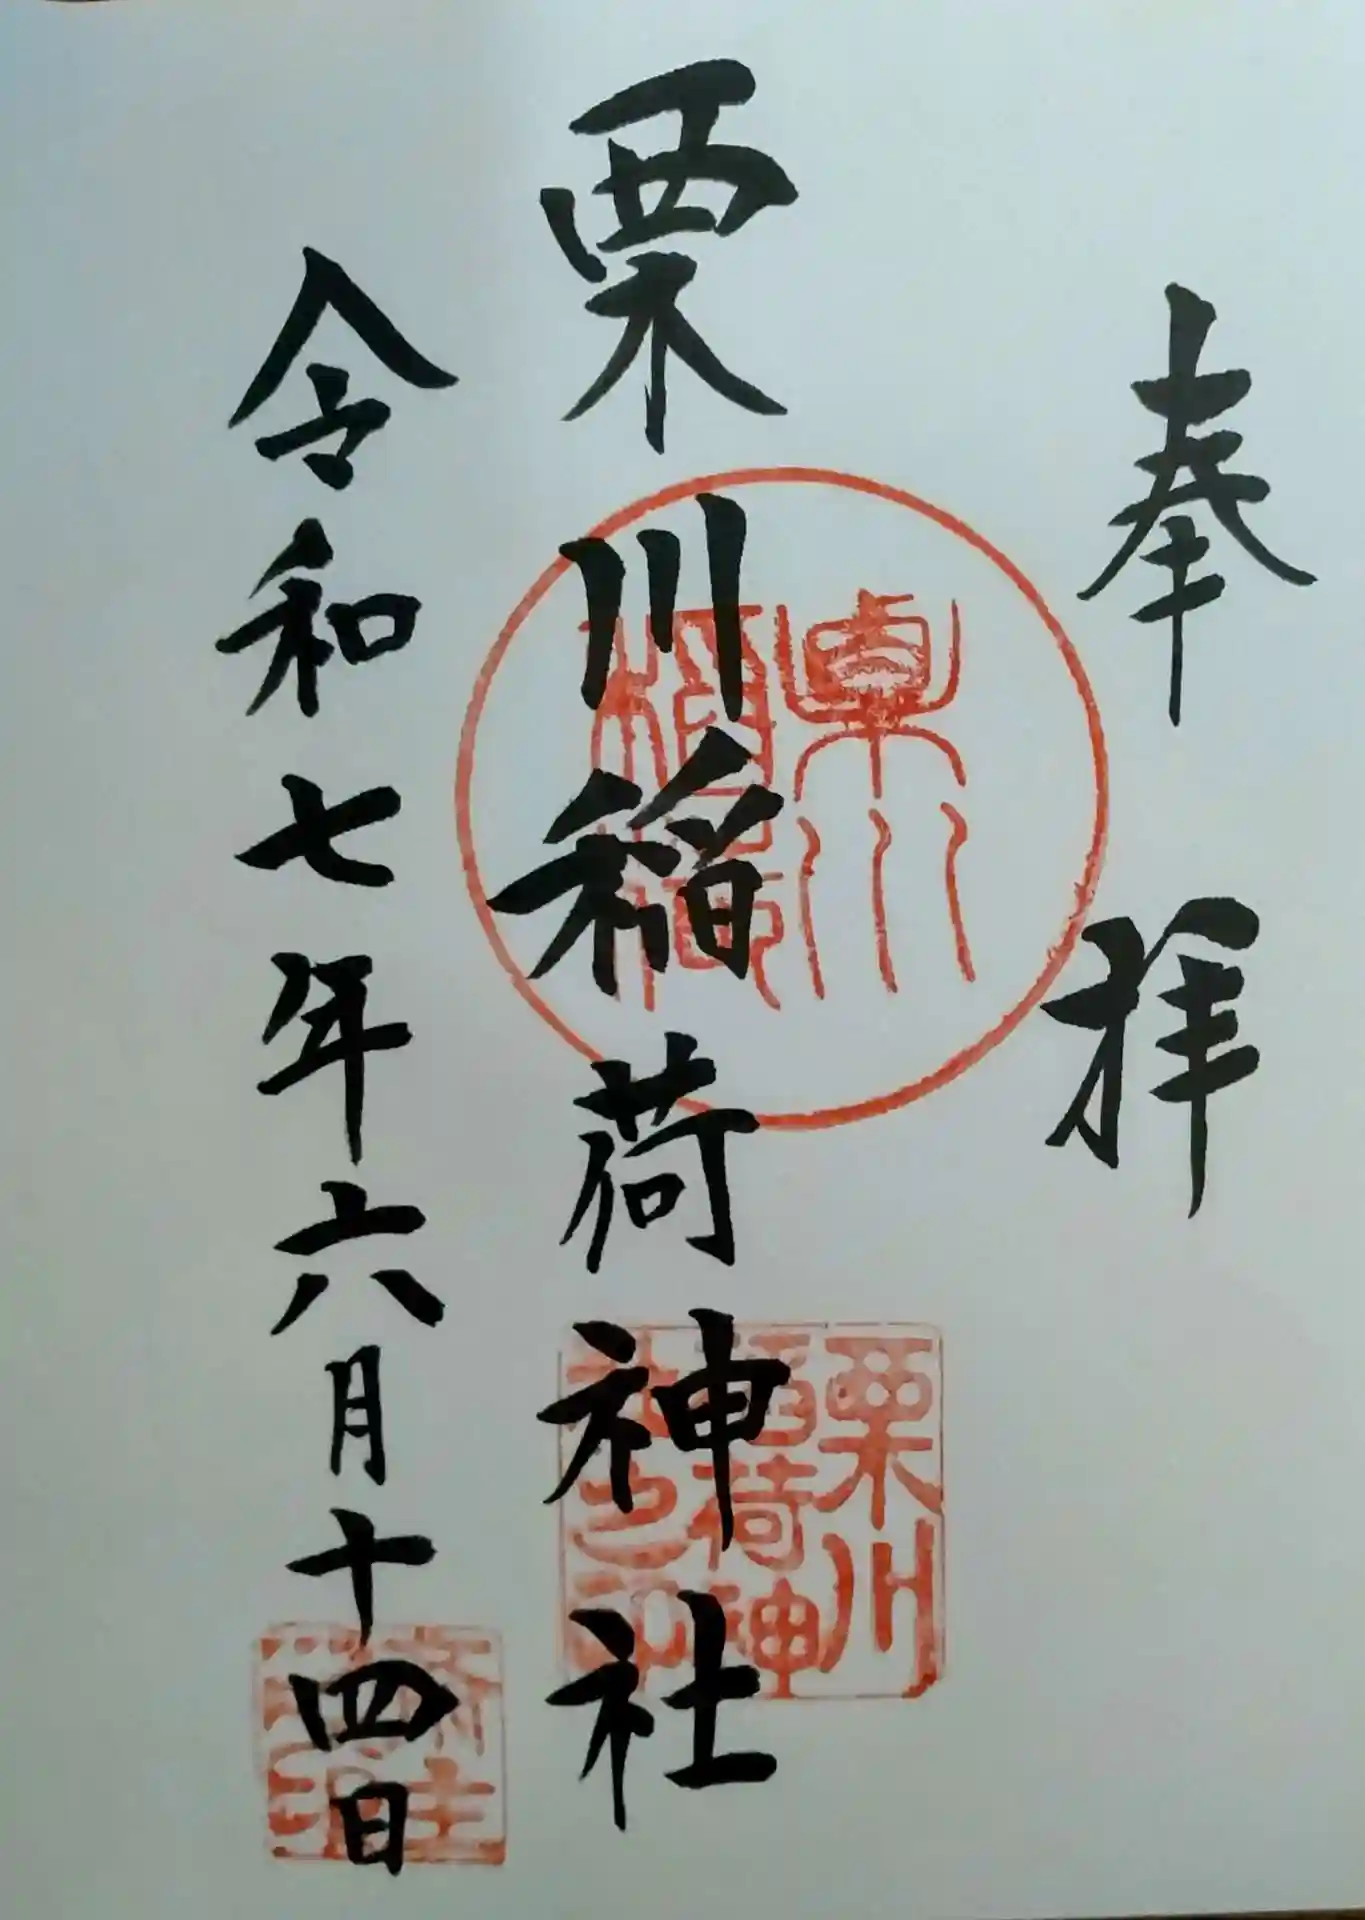 奉拝
栗川稲荷神社
令和七年六月十四日
栗川
稲荷
栗川
稲荷神
社之印